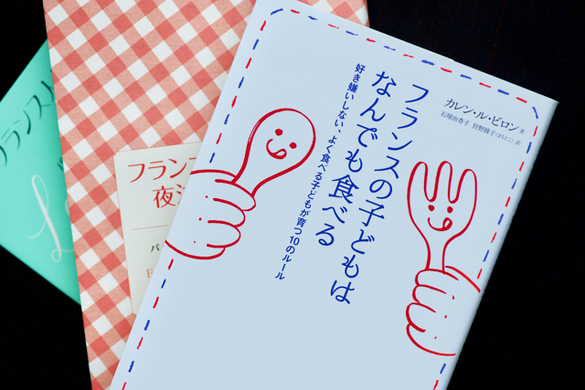 カレン・ル・ビロン 著
石塚由香子・狩野綾子(まちとこ) 訳
フランスの子どもは
なんでも食べる
好き嫌いしない、よく食べる子どもが育つ10のルール
フランス
夜泣
フランス人